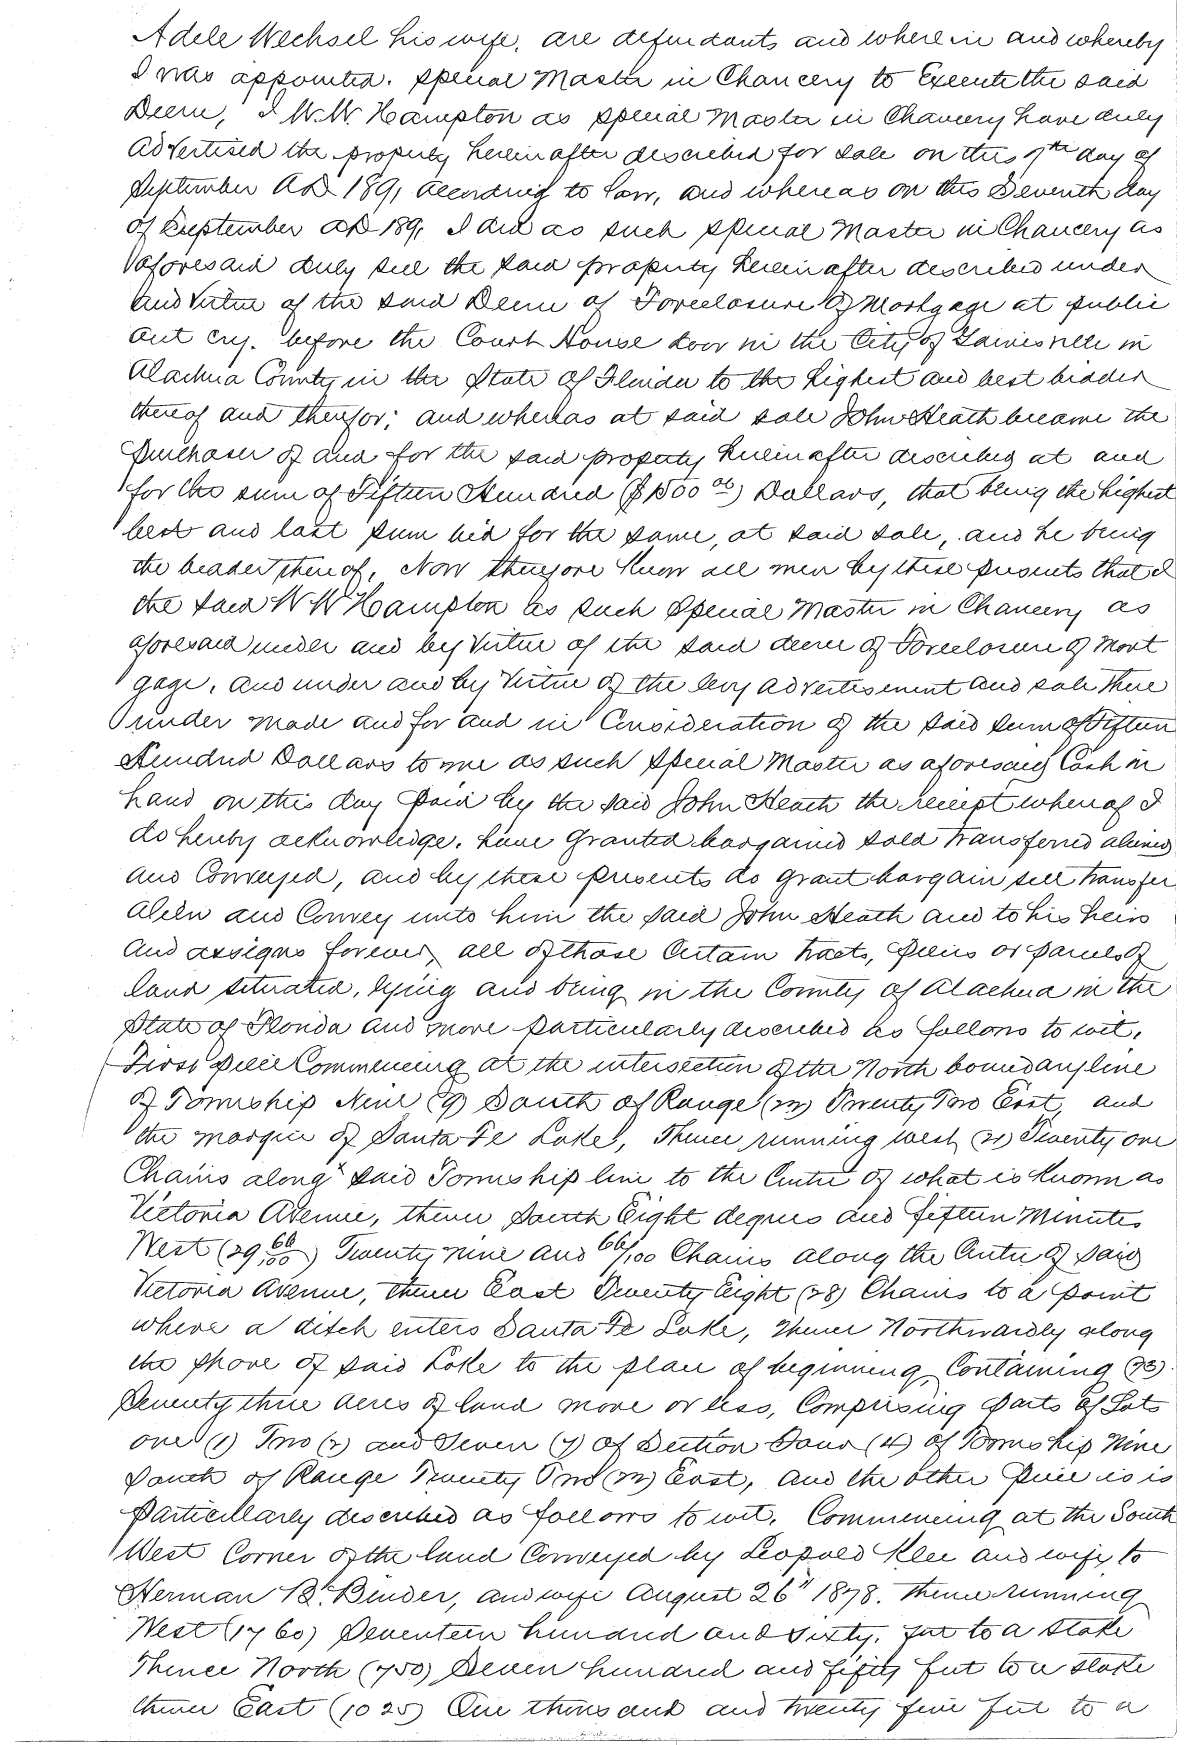 Adele Wechsel his wife, are defendants and wherein and whereby
I was appointed. Special Master in Chancery to Execute the said
Decree, I W.W. Hampton as special Master in Chancery have duly
advertised the property herein after described for sale on this 7th day of
September A.D. 1891 according to law, and whereas on this Seventh day
of September A.D. 1891 I did as such special Master in Chancery as
aforesaid duly sell the said property herein after described under
and virtue of the said Decree of Foreclosure of Mortgage at public
out cry. before the Court House door in the City of Gainesville in
Alachua County in the State of Florida to the highest and best bidder
thereof and therefor; and whereas at said sale John Heath became the
purchaser of and for the said property herein after described at and
for the sum of Fifteen Hundred ($1500 00) Dollars, that being the highest
best and last sum bid for the same, at said sale, and he being
the beader thereof, Now therefore Know all men by these presents that I
the said W W Hampton as such Special Master in Chancery as
aforesaid under and by virtue of the said decree of Foreclosure of Mort
gage, and under and by virtue of the levy advertisement and sale there
under made and for and in Consideration of the said sum of Fifteen
Hundred Dollars to me as such special Master as aforesaid Cash in
hand on this day paid by the said John Heath the receipt whereof I
do hereby acknowledge. have granted bargained sold transferred aliened
and Conveyed, and by these presents do grant bargain sell transfer
alien and Convey unto him the said John Heath and to his heirs
and assigns forever, all of those Certain tracts, pieces or parcels of
land situated, lying and being in the County of Alachua in the
State of Florida and more particularly described as follows to wit.
First piece Commencing at the intersection of the North boundary line
of Township Nine (9) South of Range (22) Twenty Two East, and
the margin of Santa Fe Lake, Thence running west (21) Twenty one
Chains along said Township line to the Centre of what is Known as
Victoria Avenue, thence South Eight degrees and fifteen Minutes
West (29 66/100) Twenty nine and 66/100 Chains along the Centre of said
Victoria Avenue, thence East Twenty Eight (28) Chains to a point
where a ditch enters Santa Fe Lake, thence Northwardly along
the shore of said Lake to the place of beginning, Containing (73)
Seventy three acres of land more or less, Comprising parts of Lots
one (1) Two (2) and Seven (7) of Section Four (4) of Township Nine
South of Range Twenty Two (22) East, and the other piece is is
particularly described as follows to wit. Commencing at the South
West Corner of the land Conveyed by Leopold Klee and wife to
Herman B. Binder, and wife August 26" 1878. thence running
West (1760) Seventeen hundred and sixty. feet to a stake
Thence North (750) Seven hundred and fifty feet to a stake
thence East (1025) One thousand and twenty five feet to a